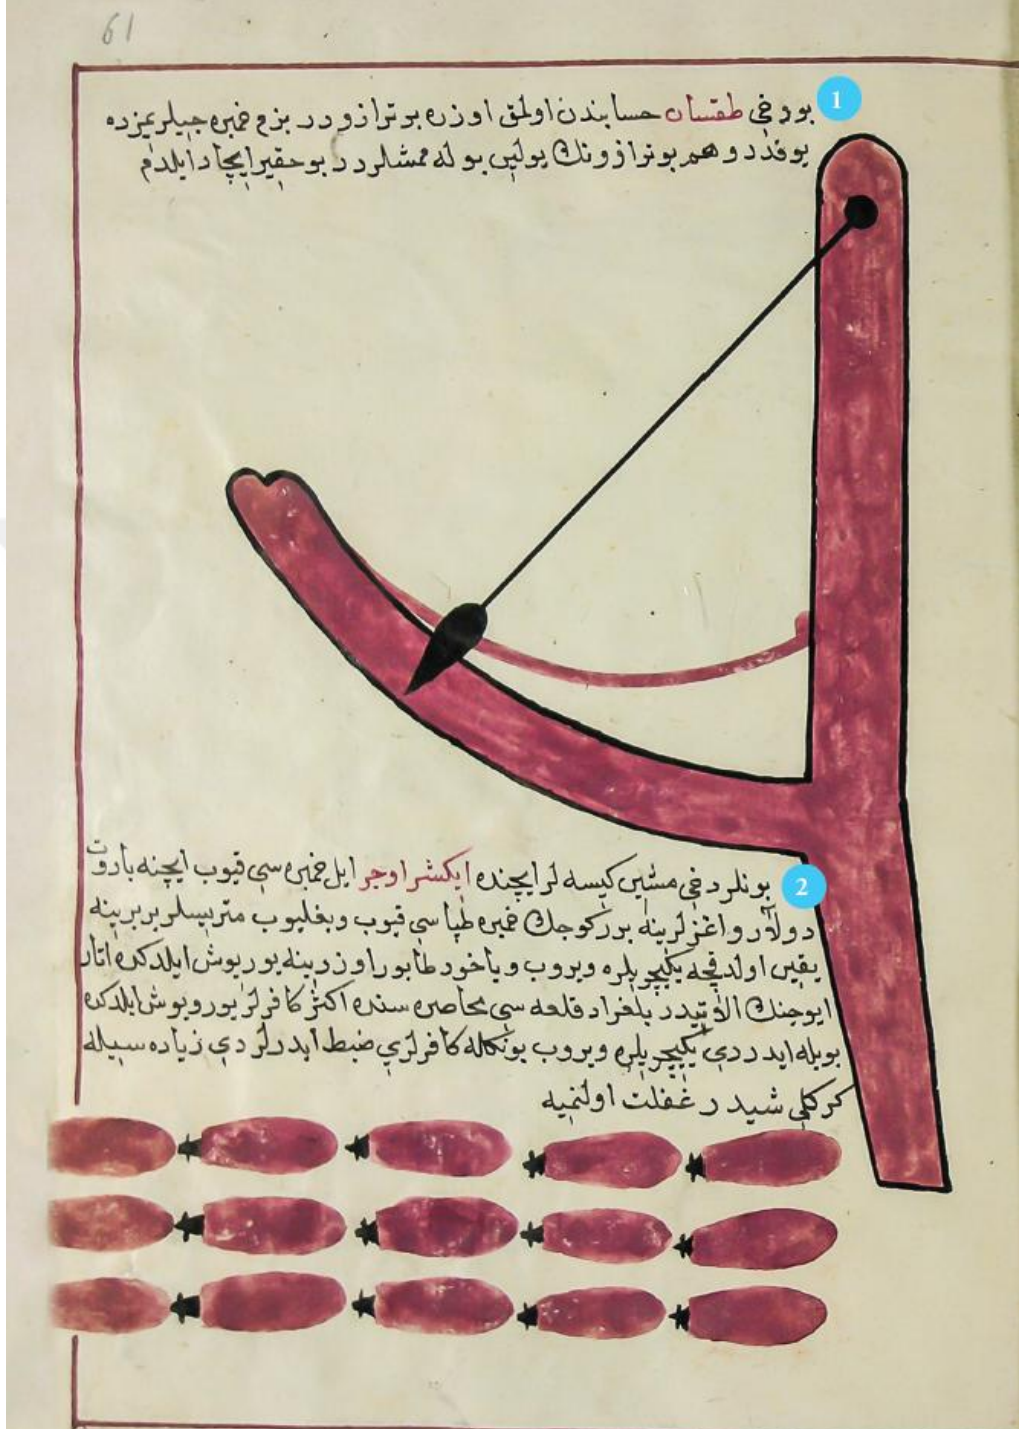 61
1
بو دخی طقسان حسابندن اولمق اوزره بو ترازو در بزم خمبره جیلریمزده
یوقدر و هم بو ترازونك یولین بوله ممشلردر بو حقیر ایجاد ایلدم
2
بونلر دخی مشین کیسه لر ایچنده ایکشر اوجر ایل خمبره سی قیوب ایچنه باروت
دولدر و اغزلرینه بر کوجك خمبره طپاسی قیوب و بغلیوب متریسلر بربرینه
یقین اولدقچه یکیچریلره ویروب و یاخود طابور اوزرینه یوریوش ایلدکده اتار
ایوجنك الاتیدر بلغراد قلعه سی محاصره سنده اکثر کافرلر یوریوش ایلدکده
بویله ایدردی یکیچریلره ویروب بونکله کافرلری ضبط ایدرلردی زیاده سیله
کرکلی شیدر غفلت اولنمیه